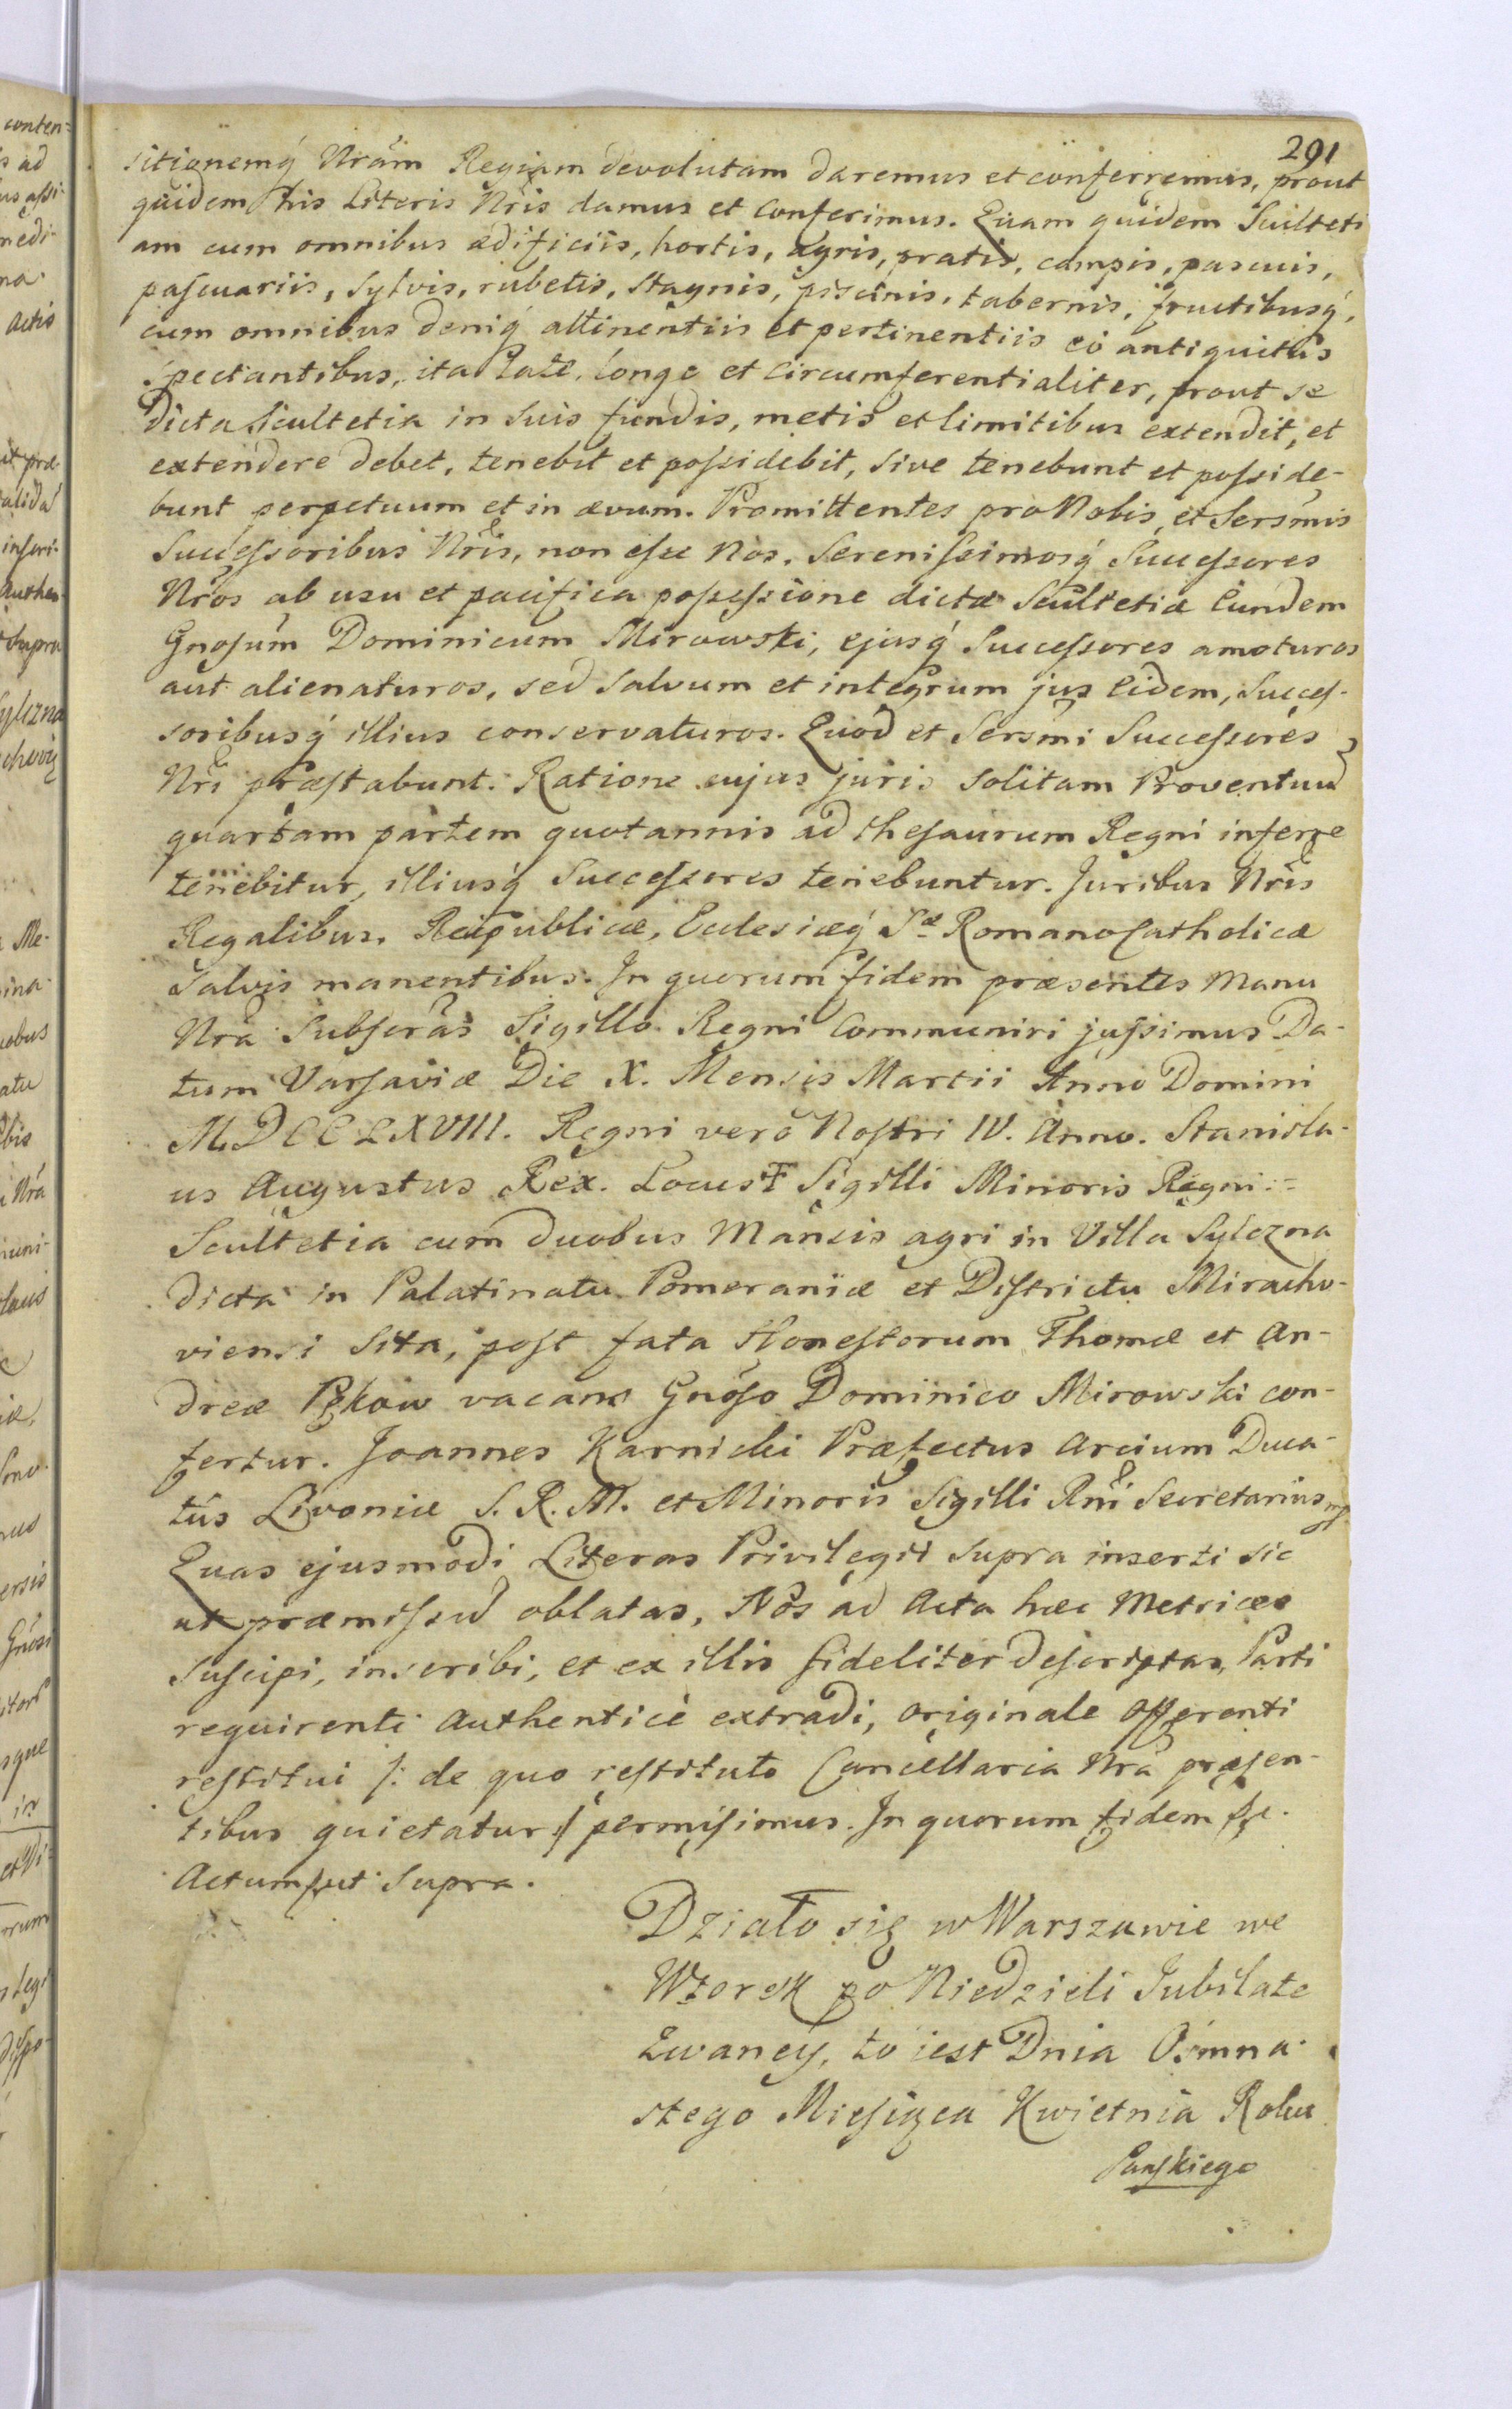 291
sitionemq́ Nrãm Regiam devolutam daremus et conferremus, prout
quidem his Literis Nris damus et conferimus. Quam quidem Sculteti
am cum omnibus ædificiis, hortis, agris, pratis, campis, pascuis,
pascuariis, Sylvis, rubetis, Stagnis, piscinis, tabernis, fructibusq́,
cum omnibus deniq́ attinentiis et pertinentiis eò antiquitùs
Spectantibus, ita latè, longe et circumferentialiter, prout se
dicta Scultetia in suis fundis, metis et limitibus extendit, et
extendere debet, tenebit et possidebit, sive tenebunt et posside-
bunt perpetuum et in ævum. Promittentes pro Nobis, et Sersmis
Successoribus Nris, non esse Nos, Serenissimosq́ Successores
Nros ab usu et pacifica possessione dictæ Scultetiæ Eundem
Gnosum Dominicum Mirowski, ejusq́ Successores amoturos
aut alienaturos, sed salvum et integrum jus Eidem, Succes-
soribusq́ illius conservaturos. Quod et Sersmi Successores
Nri præstabunt. Ratione cujus juris solitam Proventuũ
quartam partem quotannis ad thesaurum Regni inferre
tenebitur, illiusq́ Successores tenebuntur. Juribus Nris
Regalibus, Reipublicæ, Ecclesiæq́ Sæ Romano Catholicæ
Salvis manentibus. In quorum fidem præsentes Manu
Nra Subscrãs Sigillo Regni Communiri jussimus Da-
tum Varsaviæ Die X. Mensis Martii Anno Domini
M.DCCLXVIII. Regni verò Nostri IV. Anno. Stanisla-
us Augustus Rex. Locus Sigilli Minoris Regni :=
Scultetia cum duobus Mansis agri in Villa Sylczna
dicta in Palatinatu Pomeraniæ et Districtu Miracho-
viensi Sita, post fata Honestorum Thomæ et An-
dreæ Pękow vacans Gnoso Dominico Mirowski con-
fertur. Joannes Karnicki Præfectus Arcium Duca-
tûs Livoniæ S. R. M. et Minoris Sigilli Rni Secretarius mp
Quas ejusmodi Literas Privilegii supra inserti sic
ut præmissũ oblatas, Nos ad Acta hæc Metrices
Suscipi, inscribi, et ex illis fideliter descriptas, Parti
requirenti Authenticè extradi, originale Offerenti
restitui /: de quo restituto Cancellaria Nra præsen-
tibus quietatur :/ permisimus. In quorum fidem &c.
Actum ut supra.
Działo się w Warszawie we
Wtorek po Niedzieli Jubilate
Zwaney, to iest Dnia Osmna-
stego Miesiąca Kwietnia Roku
Pańskiego